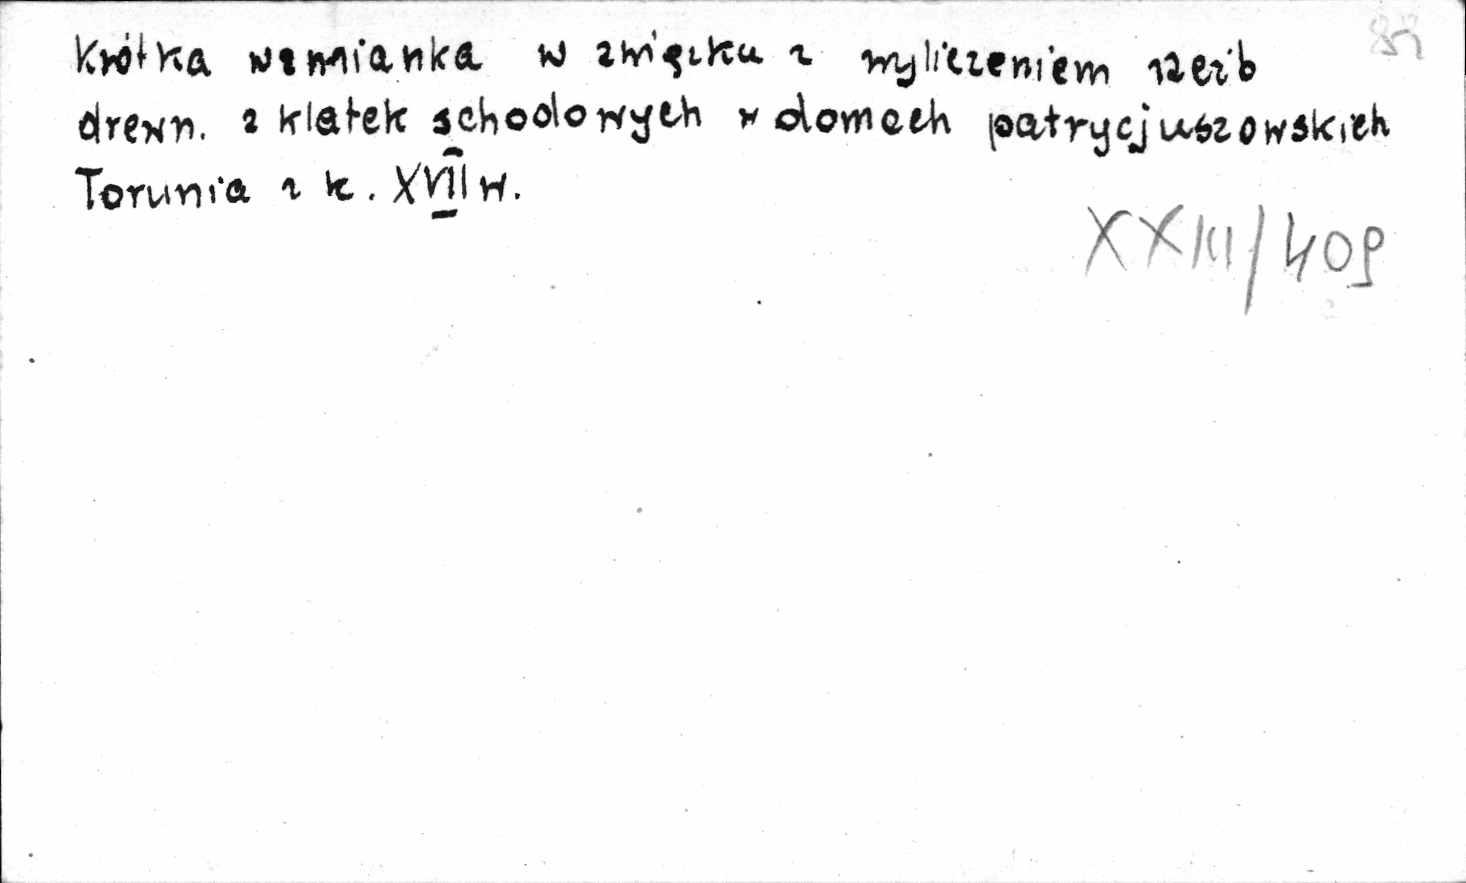 Krótka wzmianka w związku z wyliczeniem rzeźb
drewn. z klatek schodowych w domach patrycjuszowskich
Torunia z k. XVII w.
XXIII/409